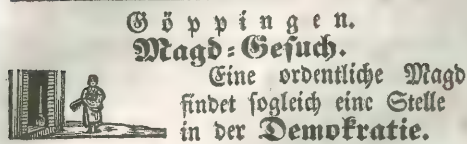 Göppingen.
Magd-Gesuch.
Eine ordentliche Magd
findet sogleich eine Stelle
in der Demokratie.